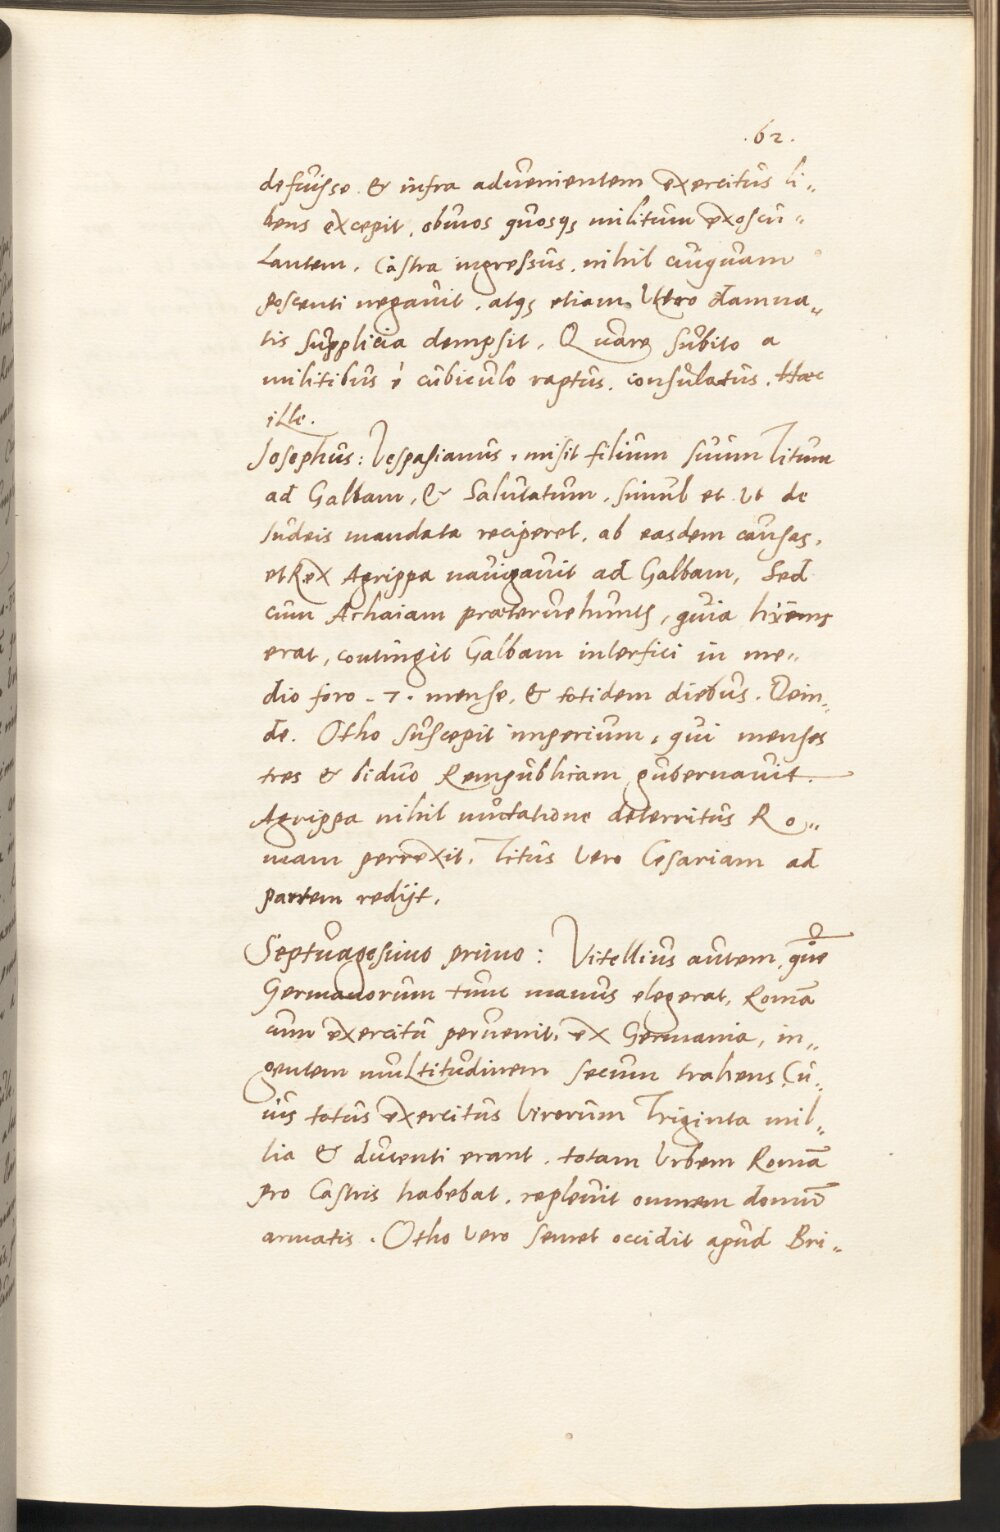 .62.
defuisse. & infra aduenientem exercitus li„
bens excepit, obuios quosq; militum exoscu„
lantem. Castra ingressus, nihil cuiquam
poscenti negauit, atq; etiam Vltro damna„
tis supplicia dempsit, Quare subito a
militibus è cubiculo raptus, consulatus. Hæc
ille.
Josephus: Vespasianus, misit filium suum Titum
ad Galbam, & Salutatum, simul et Vt de
Iudeis mandata reciperet, ab easdem causas,
et Rex Agrippa nauigauit ad Galbam, Sed
cum Achaiam præteruehunts, quia hiems
erat, contingit Galbam interfici in me„
dio foro -7. mense, & totidem diebus. Dein„
de. Otho suscepit imperium, qui menses
tres & biduo Rempublicam gubernauit.
Agrippa nihil mutatione deterritus Ro„
mam perrexit. Titus Vero Cesariam ad
partem redijt.
Septuagesimo primo: Vitellius autem, quē
Germanorum tunc manus elegerat, Romā
cum exercitu peruenit, ex Germania, in„
gentem multitudinem secum trahens, Cu„
uis totus exercitus Virorum Triginta mil„
lia & ducenti erant, totam Vrbem Romā
pro Castris habebat, repleuit omnem domū
armatis. Otho Vero semet occidit apud Bri„